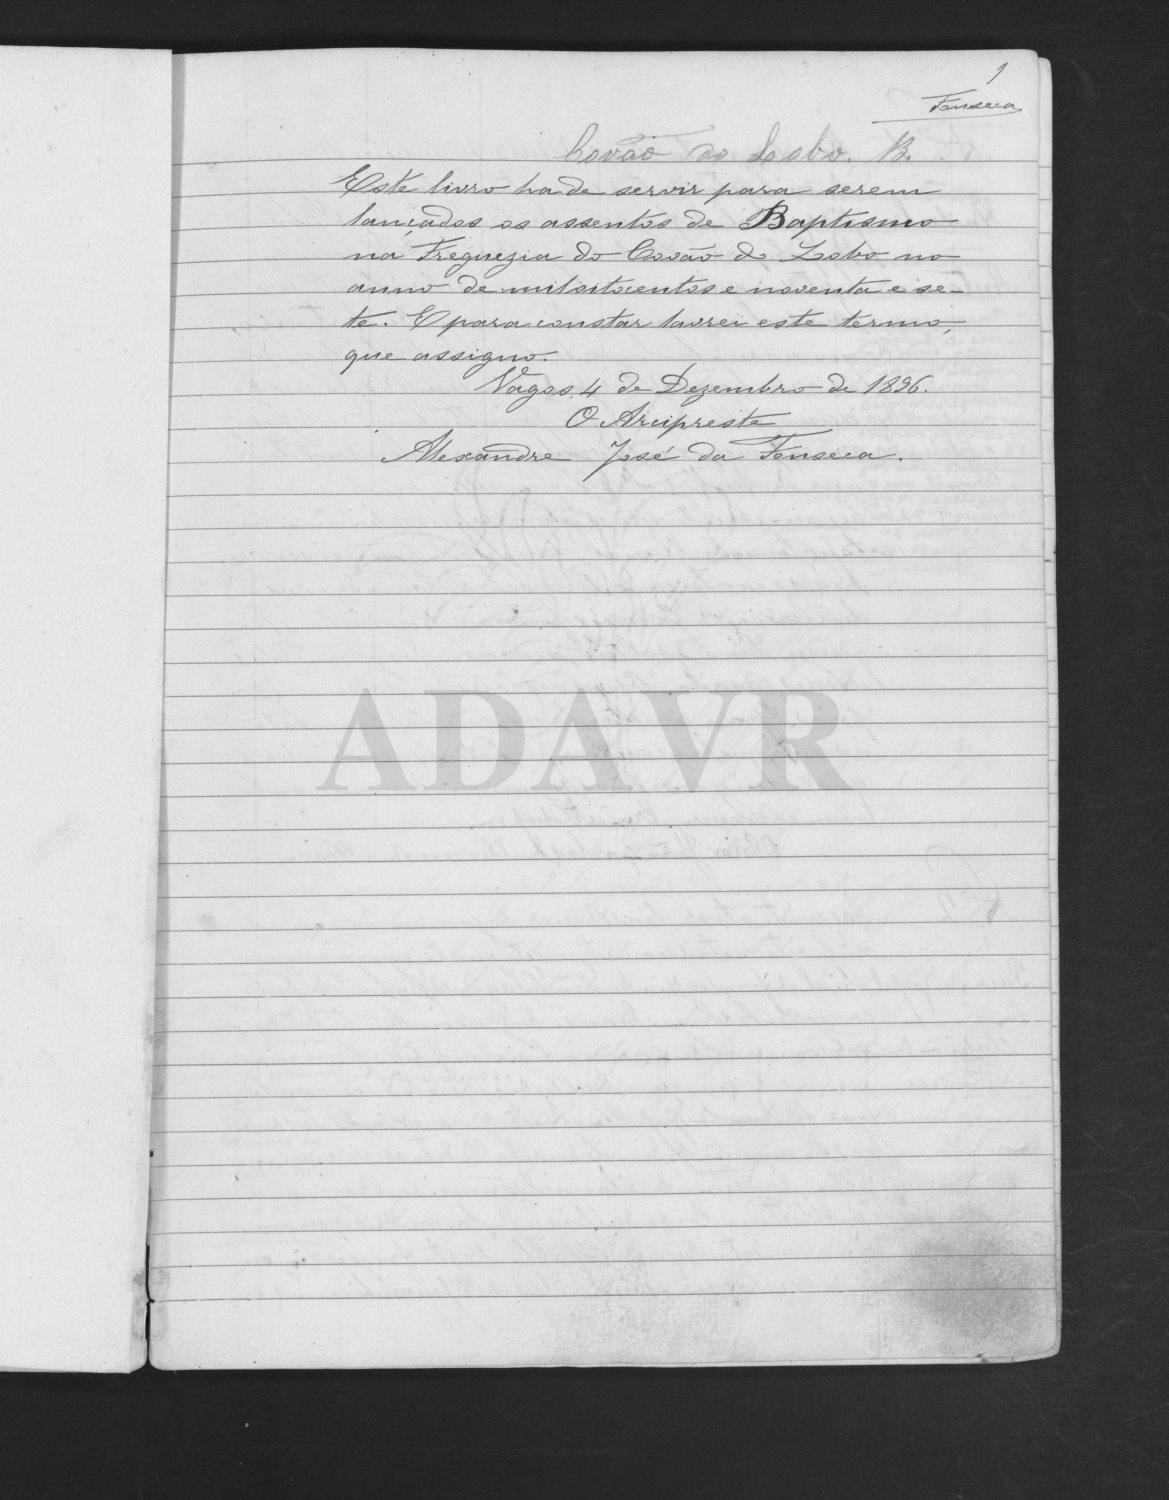 1
Fonseca
Covão do Lobo. B.
Este livro ha de servir para serem
lançados os assentos de Baptismo
na Freguezia do Covão do Lobo no
anno de mil oitocentos e noventa e se-
te. E para constar lavrei este termo,
que assigno.
Vagos, 4 de Dezembro de 1896.
O Arcipreste
Alexandre José da Fonseca.
ADAVR